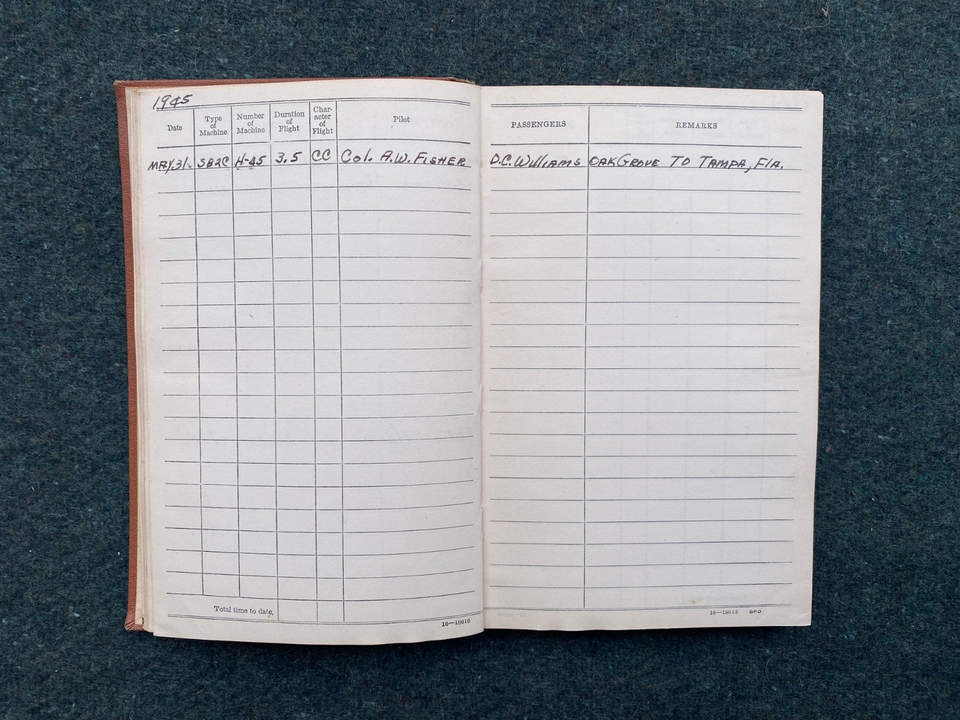 1945
Date Type of Machine Number of Machine Duration of Flight Char-acter of Flight Pilot PASSENGERS REMARKS
MAY,31. SB2C H-45 3.5 CC Col. A.W. FISHER D.C. Williams OAK GROVE TO TAMPA, Fla.
Total time to date,
16—18616
16—18616 GPO